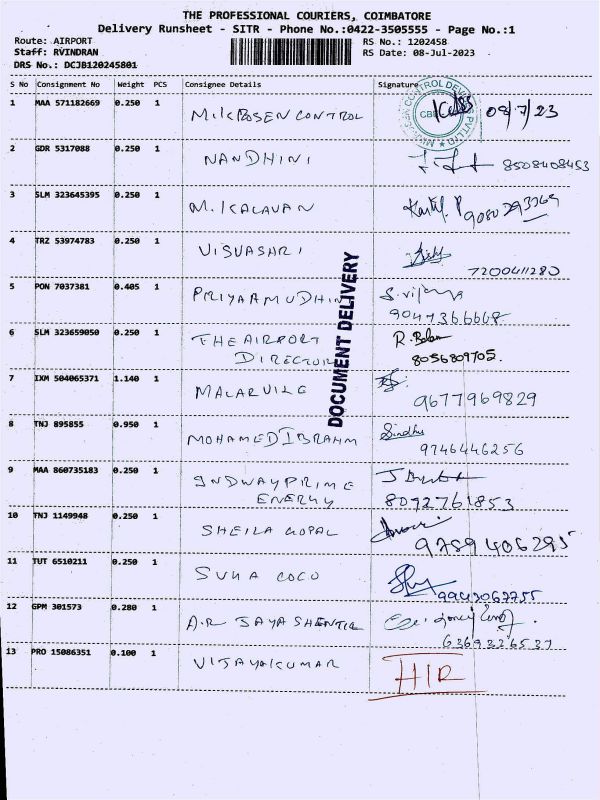 THE PROFESSIONAL COURIERS, COIMBATORE
Delivery Runsheet - SITR - Phone No.:0422-3505555 - Page No.:1
Route: AIRPORT
RS No.: 1202458
Staff: RVINDRAN
RS Date: 08-Jul-2023
DRS No.: DCJB120245801
S No Consignment No Weight PCS Consignee Details Signature
1 MAA 571182669 0.250 1 MICROSEN CONTROL 08/7/23
2 GDR 5317088 0.250 1 NANDHINI 8508408453
3 SLM 323645395 0.250 1 M.KALAVAN 9080293369
4 TRZ 53974783 0.250 1 VISUASHRI
7200411280
5 PON 7037381 0.405 1 PRIYAAMUDHIN S.vijaya
9047366668
6 SLM 323659050 0.250 1 THE AIRPORT
DIRECTOR
R.Balan
8056809705.
7 IXM 504065371 1.140 1 MALARVILE
9677969829
8 TNJ 895855 0.950 1 MOHAMED IBRAHM Sindhu
9746446256
9 MAA 860735183 0.250 1 INDWAY PRIME
ENERGY
8092761853
10 TNJ 1149948 0.250 1 SHEILA GOPAL
9789406295
11 TUT 6510211 0.250 1 SUKA COCO
9943067755
12 GPM 301573 0.280 1 A.R JAYA SHENTIL
6369326537
13 PRO 15086351 0.100 1 VIJAYAKUMAR HIR
DOCUMENT DELIVERY